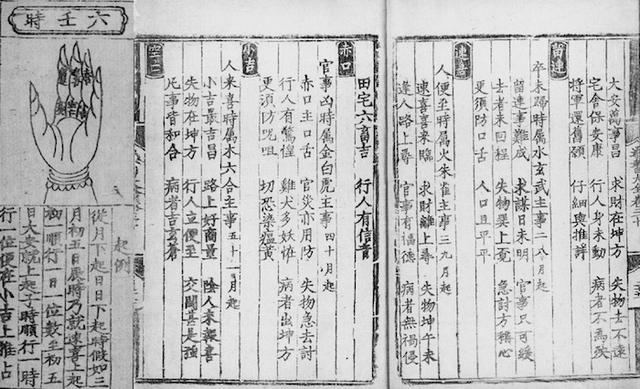 大安萬事昌 求財在坤方 失物去不遠
宅舍保安康 行人身未動 病者不為殃
將軍還舊願 仔細與推詳
留連
卒未歸時屬水玄武主事二八月起
留連事難成 求謀日未明 官事只可緩
去者未回程 失物巽上覓 急討方稱心
更須防口舌 人口且平平
速喜
人便至時屬火朱雀主事三九月起
速喜喜來臨 求財離上尋 失物坤午未
逢人路上尋 官事有福德 病者無禍侵
田宅六畜吉 行人有信音
赤口
官事凶時屬金白虎主事四十月起
赤口主口舌 官災亦用防 失物急去討
行人有驚惶 雞犬多妖怪 病者出坤方
更須防咒咀 切恐染瘟黃
小吉
人來喜時屬木六合主事五十一月起
小吉最吉昌 路上好商量 陰人來報喜
失物在坤方 行人立便至 交關甚是強
凡事皆和合 病者告穹蒼
空亡
六壬時
起例
從月下起日日下起時假如三
月初五日辰時乃就速喜上起
初一順行一日一位數至初五
日大安就上起子時順行一時
行一位便在小吉上推占